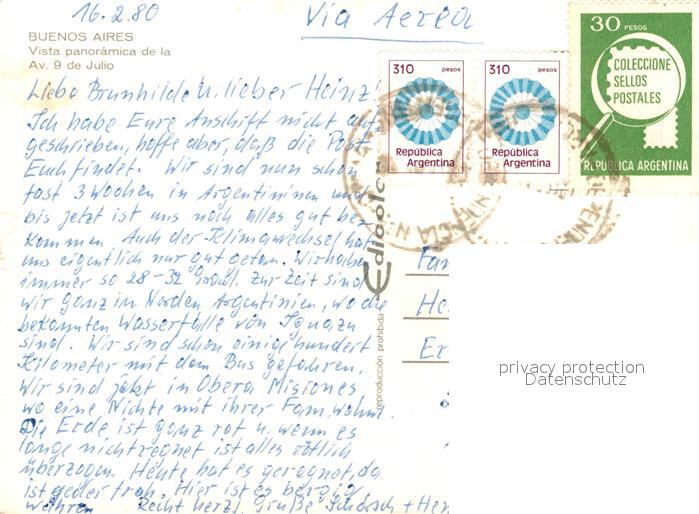 16.2.80
Via Aerea
BUENOS AIRES
Vista panorámica de la
Av. 9 de Julio
Liebe Brunhilde u. lieber Heinz!
Ich habe Eure Anschift nicht auf
geschrieben, hoffe aber, daß die Post
Euch findet. Wir sind nun schon
fast 3 Wochen in Argentininen und
bis jetzt ist uns noch alles gut be-
kommen. Auch der Klimawechsel hat
uns eigentlich nur gut getan. Wir haben
immer so 28-32 Grad. Zur Zeit sind
wir ganz im Norden Argentinien, wo die
bekannten Wasserfälle von Iguazu
sind. Wir sind schon einige hundert
Kilometer mit dem Bus gefahren.
Wir sind jetzt in Obera Misiones
wo eine Nichte mit ihrer Fam. wohnt.
Die Erde ist ganz rot u. wenn es
lange nicht regnet ist alles rötlich
überzogen. Heute hat es geregnet, da
ist jeder froh. Hier ist es bergig
Recht herzl. Grüße
310 pesos
República
Argentina
310 pesos
República
Argentina
30 PESOS
COLECCIONE
SELLOS
POSTALES
REPUBLICA ARGENTINA
Edicolor
reproducción prohibida
Fam
He
Er
privacy protection
Datenschutz